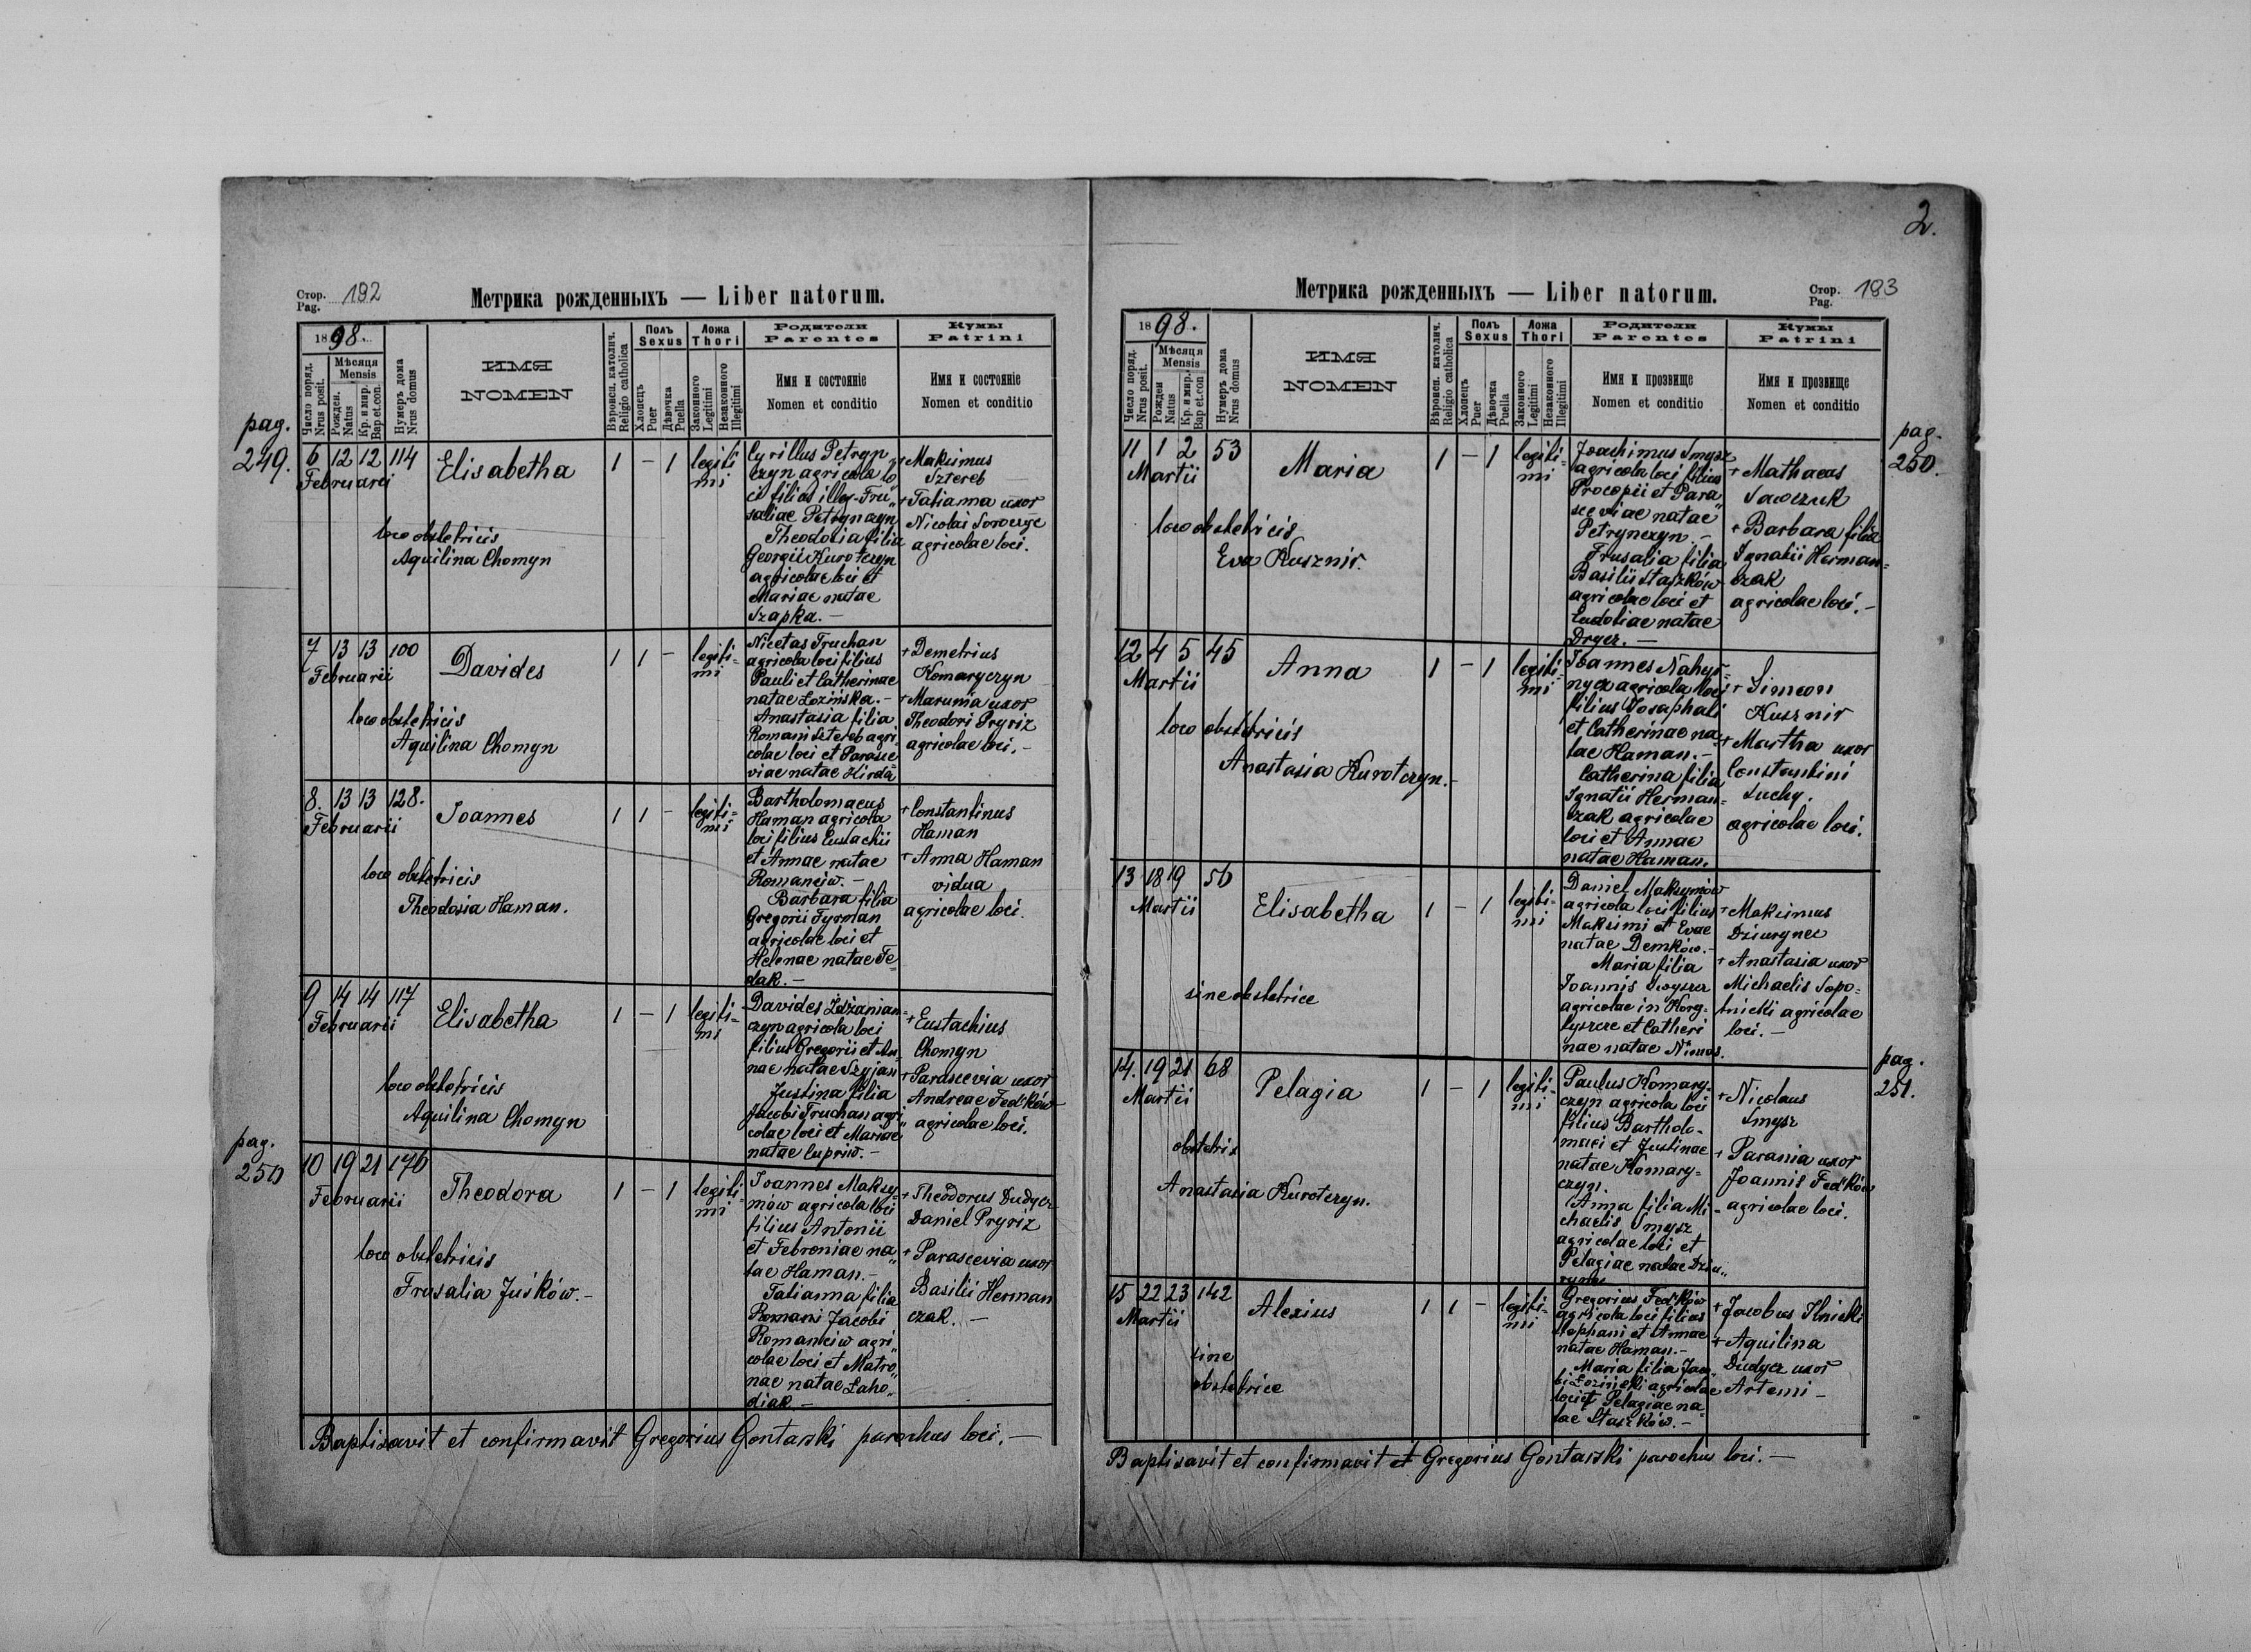 2.
Стор.
Pag. 182
Метрика рожденныхъ — Liber natorum.
1898.
Число поряд.
Nrus posit.
Мѣсяця
Mensis
Рожден.
Natus
Кр. и мир.
Bap. et con.
Нумеръ дома
Nrus domus
ИМЯ
NOMEN
Вѣроисп. католич.
Religio catholica
Полъ
Sexus
Хлопецъ
Puer
Дѣвочка
Puella
Ложа
Thori
Законного
Legitimi
Незаконного
Illegitimi
Родители
Parentes
Имя и состояніе
Nomen et conditio
Кумы
Patrini
Имя и состояніе
Nomen et conditio
pag.
249.
6 12 12 114
Februarii
Elisabetha
1 – 1
legiti
mi
loco obstetricis
Aquilina Chomyn
Cyrillus Petryn
czyn agricola lo
ci filius illeg. Fru„
saliae Petrynczyn
Theodosia filia
Georgii Kurotczyn
agricolae loci et
Mariae natae
Szapka. –
+ Maksimus
Sztereb
+ Tatianna uxor
Nicolai
agricolae loci.
7 13 13 100
Februarii
Davides
1 1 –
legiti=
mi
loco obstetricis
Aquilina Chomyn
Nicetas Truchan
agricola loci filius
Pauli et Catherinae
natae Łozińska. –
Anastasia filia
Romani Sztereb agri
colae loci et Parasce
viae natae Hirda
+ Demetrius
Komaryczyn
+ Marunia uxor
Theodori Pryriz
agricolae loci. –
8. 13 13 128.
Februarii
Joannes
1 1 –
legiti=
mi
loco obstetricis
Theodosia Haman.
Bartholomaeus
Haman agricola
loci filius Eustachii
et Annae natae
Romanciw. –
Barbara filia
Gregorii Fyrman
agricolae loci et
Helenae natae Fe=
dak. –
+ Constantinus
Haman
+ Anna Haman
vidua
agricolae loci.
9 14 14 117
Februarii
Elisabetha
1 – 1
legiti=
mi
loco obstetricis
Aquilina Chomyn
Davides Zdżanian=
czyn agricola loci
filius Gregorii et An
nae natae Szyjan
Justina filia
Jacobi Truchan agri„
colae loci et Mariae
natae Cupriw. –
+ Eustachius
Chomyn
+ Parascevia uxor
Andreae Fed'ków
agricolae loci.
pag.
250
10 19 21 176
Februarii
Theodora
1 – 1
legiti=
mi
loco obstetricis
Frusalia Juśków. –
Joannes Maksy=
mów agricola loci
filius Antonii
et Febroniae na„
tae Haman. –
Tatianna filia
Romani Jacobi
Romanciw agri„
colae loci et Matro„
nae natae Łaho„
diak. –
+ Theodorus Dudycz
Daniel Pryriz
+ Parascevia uxor
Basilii Herman
czak. –
Baptisavit et confirmavit Gregorius Gontarski parochus loci. –
Метрика рожденныхъ — Liber natorum.
Стор.
Pag. 183
1898.
Число поряд.
Nrus posit.
Мѣсяця
Mensis
Рожден
Natus
Кр. и мир.
Bap et.con
Нумеръ дома
Nrus domus
ИМЯ
NOMEN
Вѣроисп. католич.
Religio catholica
Полъ
Sexus
Хлопецъ
Puer
Дѣвочка
Puella
Ложа
Thori
Законного
Legitimi
Незаконного
Illegitimi
Родители
Parentes
Имя и прозвище
Nomen et conditio
Кумы
Patrini
Имя и прозвище
Nomen et conditio
pag.
250.
11 1 2 53
Martii
Maria
1 – 1
legiti=
mi
loco obstetricis
Eva Kusznir.
Joachimus Smysz
agricola loci filius
Procopii et Para
sceviae natae
Petrynczyn. –
Frusalia filia
Basilii Staszków
agricolae loci et
Eudoliae natae
Drycz. –
+ Mathaeus
Sawczuk
+ Barbara filia
Ignatii Herman=
czak
agricolae loci. –
12 4 5 45
Martii
Anna
1 – 1
legiti=
mi
loco obstetricis
Anastasia Kurotczyn. –
Joannes Nahyr=
nycz agricola loci
filius Josaphati
et Catherinae na
tae Haman. –
Catherina filia
Ignatii Herman=
czak agricolae
loci et Annae
natae Haman.
+ Simeon
Kusznir
+ Martha uxor
Constantini
Suchy.
agricolae loci.
13 18 19 56
Martii
Elisabetha
1 – 1
legiti=
mi
sine obstetrice
Daniel Maksymów
agricola loci filius
Maksimi et Evae
natae Demków. –
Maria filia
Joannis
agricolae in Horo=
dyszcze et Catheri
nae natae
+ Maksimus
Dziurynec
+ Anastasia uxor
Michaelis Sopo=
tnicki agricolae
loci. –
pag.
251.
14. 19 21 68
Martii
Pelagia
1 – 1
legiti=
mi
obstetrix
Anastasia Kurotczyn.
Paulus Komary=
czyn agricola loci
filius Bartholo=
maei et Justinae
natae Komary=
czyn.
Anna filia Mi=
chaelis Smysz
agricolae loci et
Pelagiae natae Dziu„
rynec
+ Nicolaus
Smysz
+ Parania uxor
Joannis Fed'ków
agricolae loci.
15 22 23 142
Martii
Alexius
1 1 –
legiti=
mi
sine
obstetrice
Gregorius Fed'ków
agricola loci filius
Stephani et Annae
natae Haman. –
Maria filia Jaco„
bi Łoziński agricolae
loci et Pelagiae na
tae Staszków. –
+ Jacobus Ilnicki
+ Aquilina
Dudycz uxor
Artemi –
Baptisavit et confirmavit et Gregorius Gontarski parochus loci. –